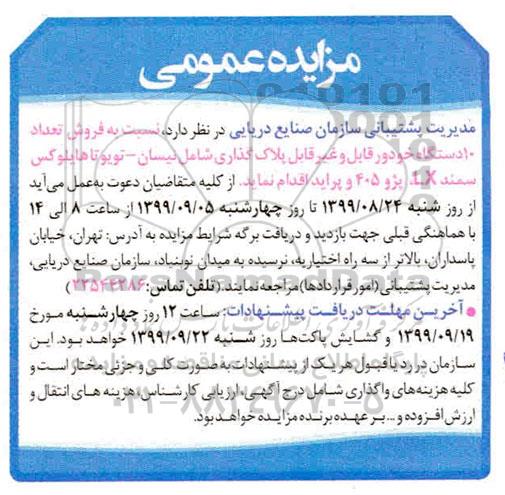 مزایده عمومی
مدیریت پشتیبانی سازمان صنایع دریایی در نظر دارد، نسبت به فروش تعداد
۱۰ دستگاه خودور قابل و غیر قابل پلاک گذاری شامل نیسان – تویوتا هایلوکس
سمند LX، پژو ۴۰۵ و پراید اقدام نماید. از کلیه متقاضیان دعوت به عمل می آید
از روز شنبه ۱۳۹۹/۰۸/۲۴ تا روز چهارشنبه ۱۳۹۹/۰۹/۰۵ از ساعت ۸ الی ۱۴
با هماهنگی قبلی جهت بازدید و دریافت برگه شرایط مزایده به آدرس: تهران، خیابان
پاسداران، بالاتر از سه راه اختیاریه، نرسیده به میدان نوبنیاد، سازمان صنایع دریایی،
مدیریت پشتیبانی (امور قراردادها) مراجعه نمایند. (تلفن تماس: ۲۲۵۴۴۲۸۶)
• آخرین مهلت دریافت پیشنهادات: ساعت ۱۲ روز چهارشنبه مورخ
۱۳۹۹/۰۹/۱۹ و گشایش پاکت‌ها روز شنبه ۱۳۹۹/۰۹/۲۲ خواهد بود. این
سازمان در رد یا قبول هر یک از پیشنهادات به صورت کلی و جزئی مختار است و
کلیه هزینه‌های واگذاری شامل درج آگهی، ارزیابی کارشناس، هزینه های انتقال و
ارزش افزوده و ... بر عهده برنده مزایده خواهد بود.
ParsNamadData
پایگاه اطلاع رسانی مناقصه و مزایده
۰۲۱-۸۸۳۴۹۶۷۰-۵